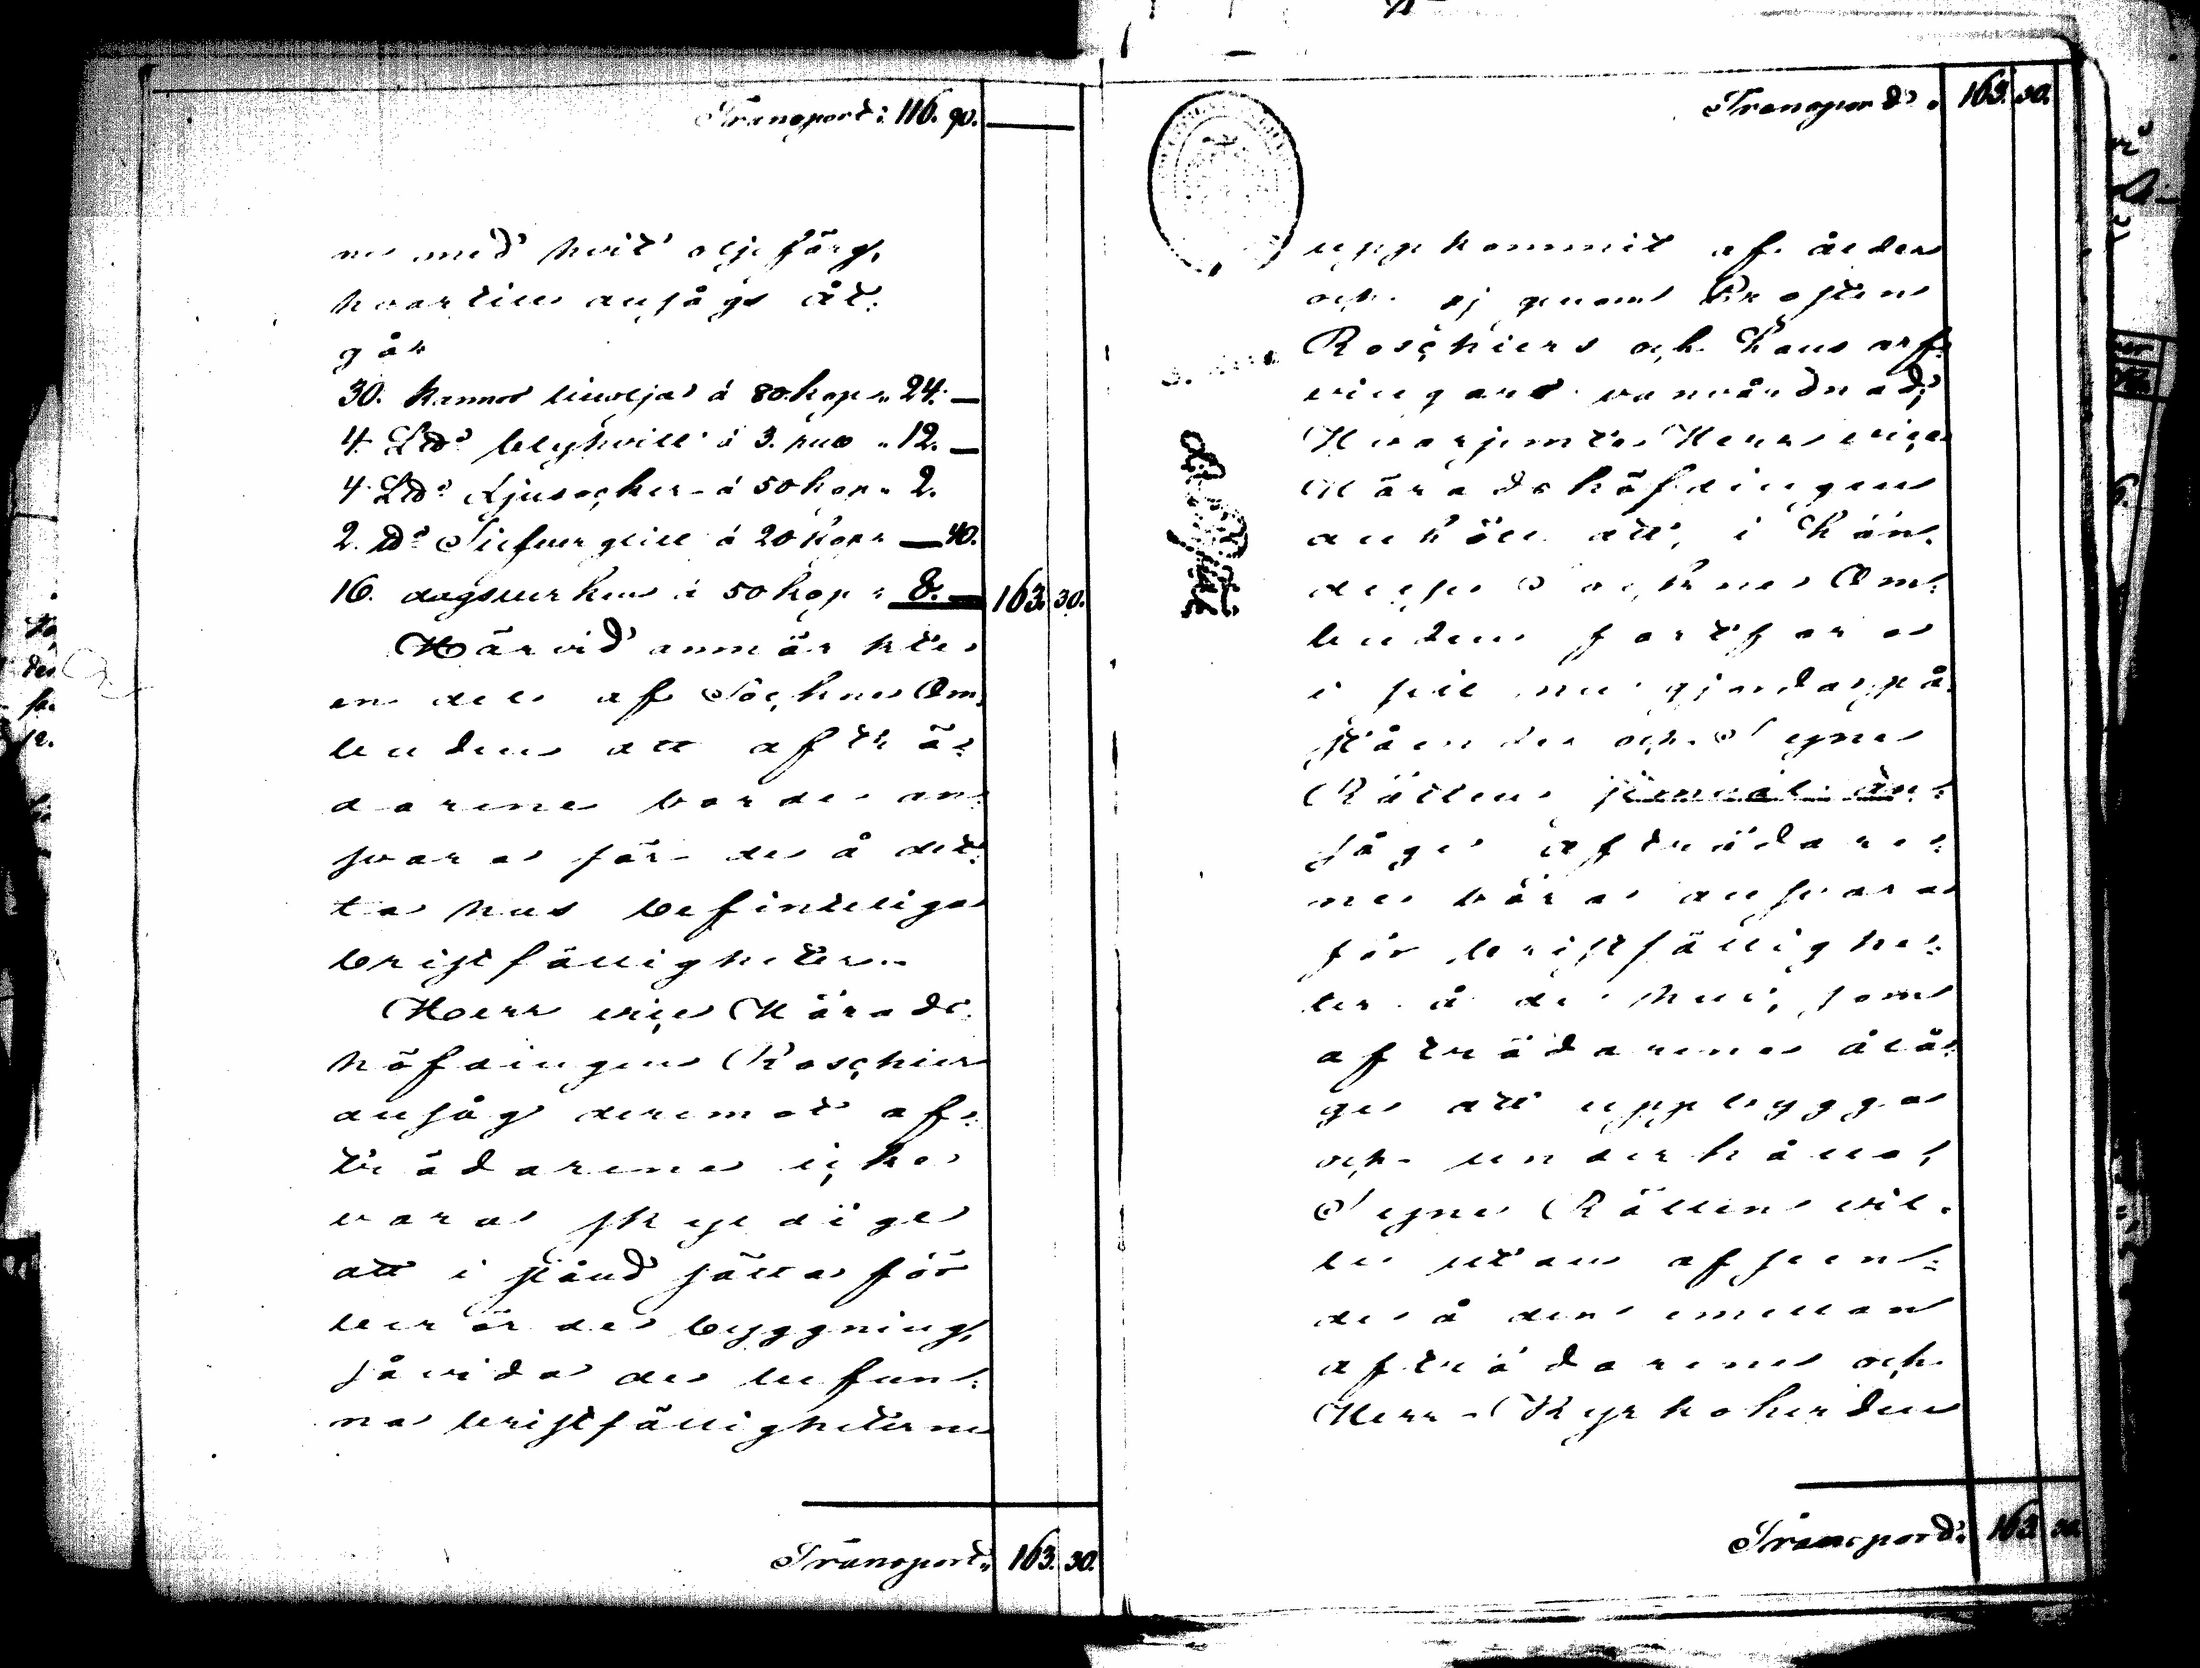 Transport: 116. 90.
ne med hvit oljefärg,
hvartill ansågs åt-
gå
30. kannor linolja á 80 kop. 24. —
4. Lb blyhvitt á 3. rub. 12. —
4. Lb Ljusocker á 50 kop. 2.
2. lb Silfverglitt á 20 kop. — 40.
16. dagsverken á 50 kop. 8. — 163. 30.
Härvid anmärkte
en del af Sockne Om-
buden att afträ-
darene borde an-
svara för de å det-
ta hus befinteliga
bristfälligheter.
Herr vice Härads-
höfdingen Roschier
ansåg deremot af-
trädarene icke
vara skyldige
att i stånd sätta för
berörde byggning,
såvida de befun-
na bristfälligheterne
Transport: 163. 30.
Transport: 163. 30.
uppkommit af ålder
och ej genom Prosten
Roschiers och hans arf-
vingars vanvårdnad;
Hvarjemte Herr vice
Häradshöfdingen
anhöll att, i hän-
delse Sockne Om-
buden fortfara
i sit nu gjorda på-
stående och Syne
Rätten jemväl an-
såge afträdare-
ne böra ansvara
för bristfällighe-
ter å de hus, som
afträdarene ålå-
ge att uppbygga
och underhålla,
Syne Rätten vil-
le utan afseen-
de å den emellan
afträdarene och
Herr Kyrkoherden
Transport: 163. 30.